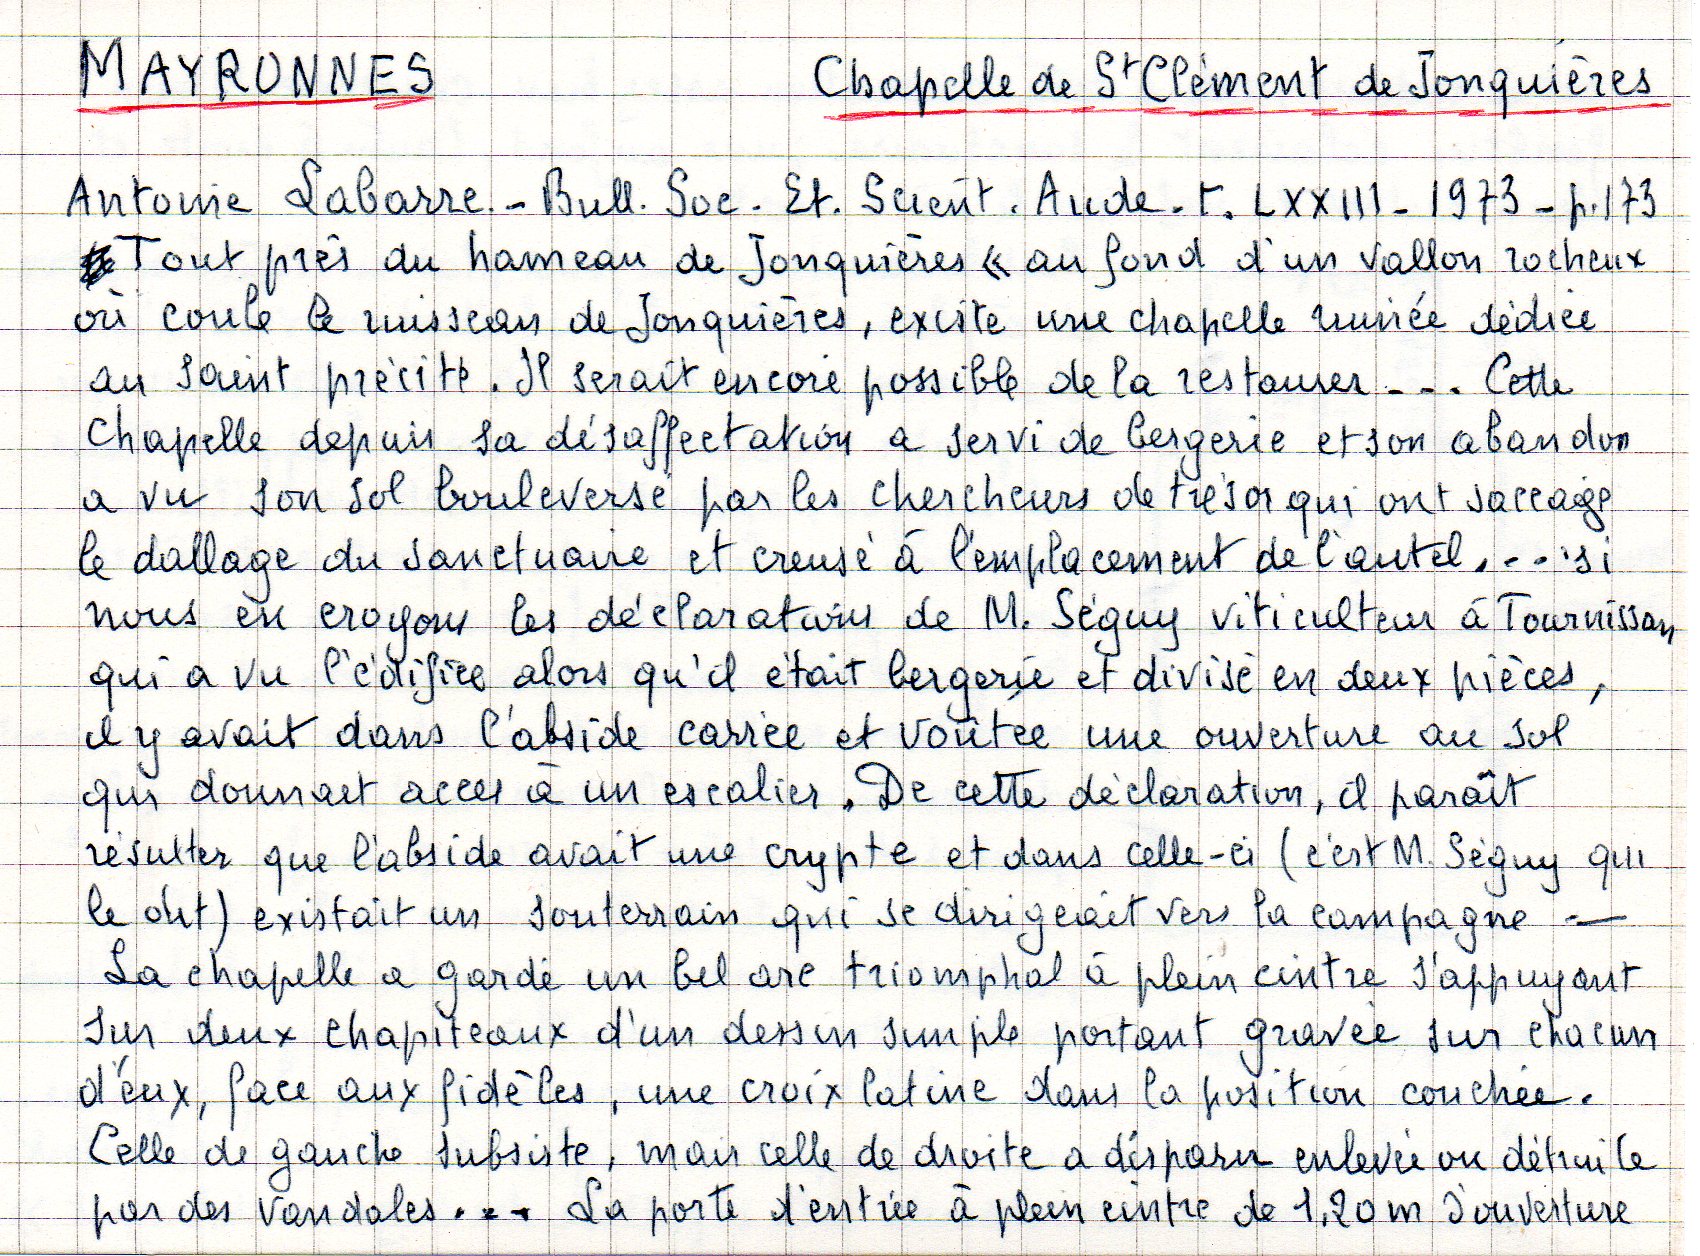 MAYRONNES Chapelle de St Clément de Jonquières
Antoine Labarre. - Bull. Soc. Et. Scient. Aude. t. LXXIII - 1973 - p.173
Tout près du hameau de Jonquières « au fond d'un vallon rocheux
où coule le ruisseau de Jonquières, existe une chapelle ruinée dédiée
au saint précité. Il serait encore possible de la restaurer --- Cette
Chapelle depuis sa désaffectation a servi de bergerie et son abandon
a vu son sol bouleversé par les chercheurs de trésor qui ont saccagé
le dallage du sanctuaire et creusé à l'emplacement de l'autel. --- si
nous en croyons les déclarations de M. Séguy viticulteur à Tournissan
qui a vu l'édifice alors qu'il était bergerie et divisé en deux pièces,
il y avait dans l'abside carrée et voûtée une ouverture au sol
qui donnait accès à un escalier. De cette déclaration, il paraît
résulter que l'abside avait une crypte et dans celle-ci (c'est M. Séguy qui
le dit) existait un souterrain qui se dirigeait vers la campagne —
La chapelle a gardé un bel arc triomphal à plein cintre s'appuyant
sur deux chapiteaux d'un dessin simple portant gravée sur chacun
d'eux, face aux fidèles, une croix latine dans la position couchée.
Celle de gauche subsiste, mais celle de droite a disparu enlevée ou détruite
par des vandales... La porte d'entrée à plein cintre de 1,20 m d'ouverture